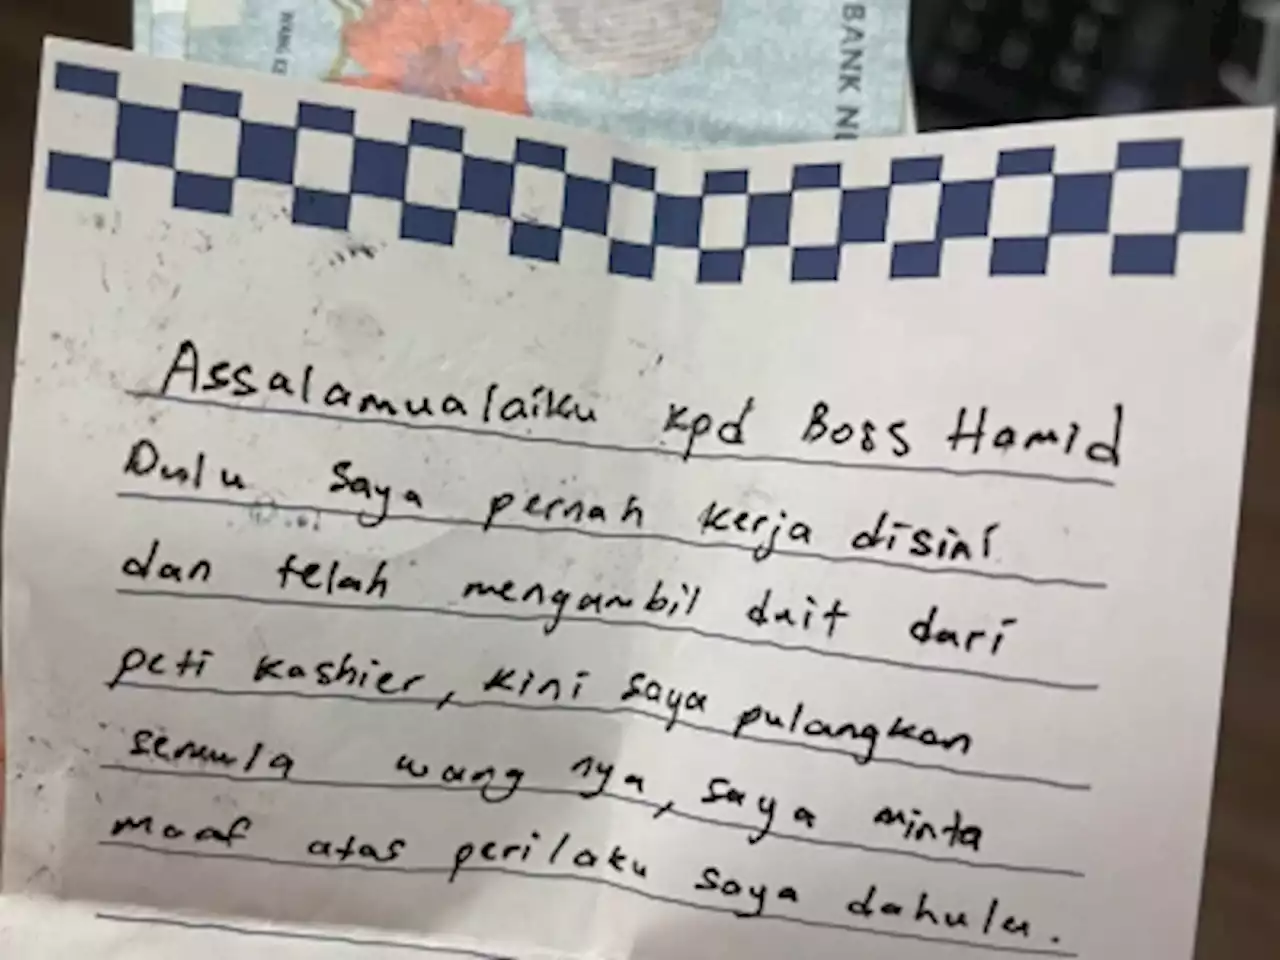 BANK NE
WANG KE
Assalamualaiku kpd Boss Hamid
Dulu saya pernah kerja disini
dan telah mengambil duit dari
peti kashier, kini saya pulangkan
semula wang nya, saya minta
maaf atas perilaku saya dahulu.